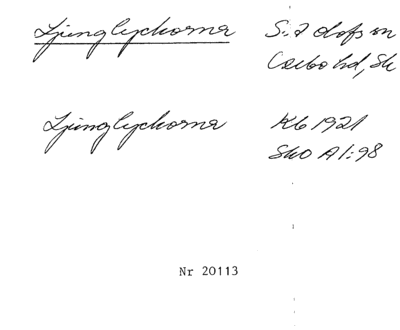 Ljunglyckorna S:t Olofs sn
Albo hd, Sk
Ljunglyckorna Kb 1921
SkO A1:98
Nr 20113